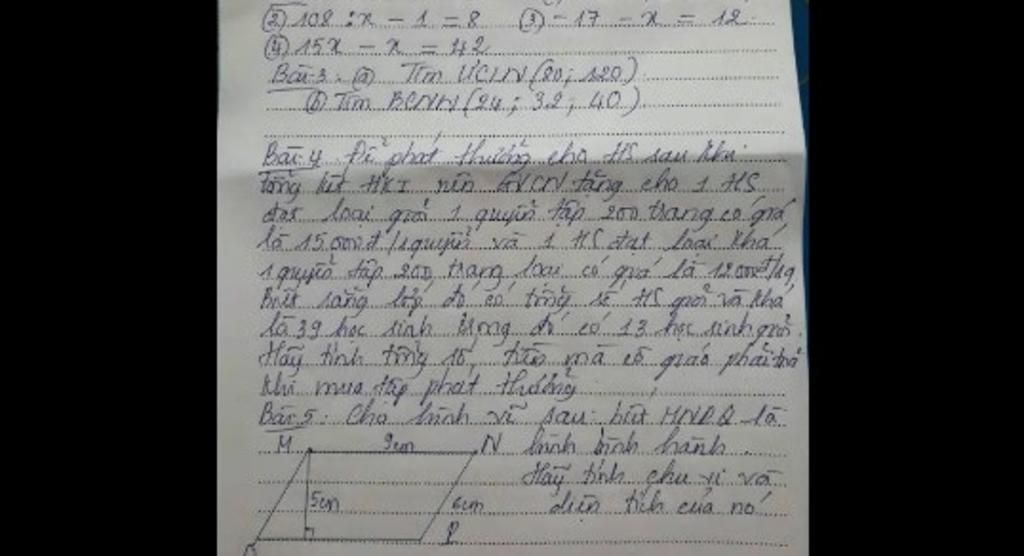 ② 108 : x - 1 = 8 ③ -17 - x = 12
④ 15x - x = 42
Bài 3. ⓐ Tìm ƯCLN (80; 120)
ⓑ Tìm BCNN (24; 32; 40)
Bài 4. Để phát thưởng cho HS sau khi
tổng kết HKI nên GVCN tặng cho 1 HS
đạt loại giỏi 1 quyển tập 200 trang có giá
là 15.000đ/1quyển và 1 HS đạt loại khá
1 quyển tập 200 trang loại có giá là 12000đ/1q,
biết rằng lớp đó có tổng số HS giỏi và khá
là 39 học sinh trong đó có 13 học sinh giỏi.
Hãy tính tổng số tiền mà cô giáo phải trả
khi mua tập phát thưởng
Bài 5. Cho hình vẽ sau biết MNPQ là
M 9cm N hình bình hành.
Hãy tính chu vi và
5cm 6cm diện tích của nó
P